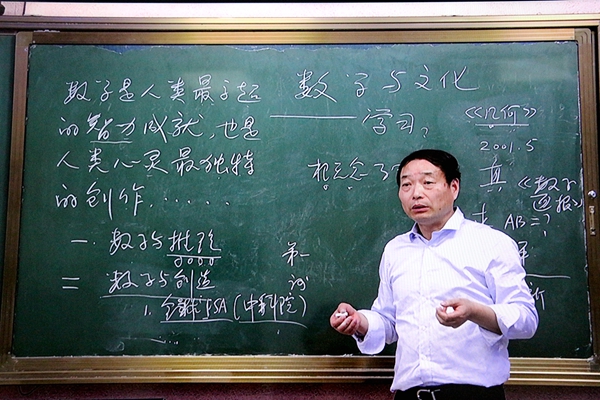 数学与文化
数学是人类最子起
的智力成就,也是
人类心灵最独特
的创作......
学习。
一、数学与推理
二 数学与创造
1.
FSA(中科院)
第一
概念
《几何》
2001.5
真
《数学
通报》
AB=?